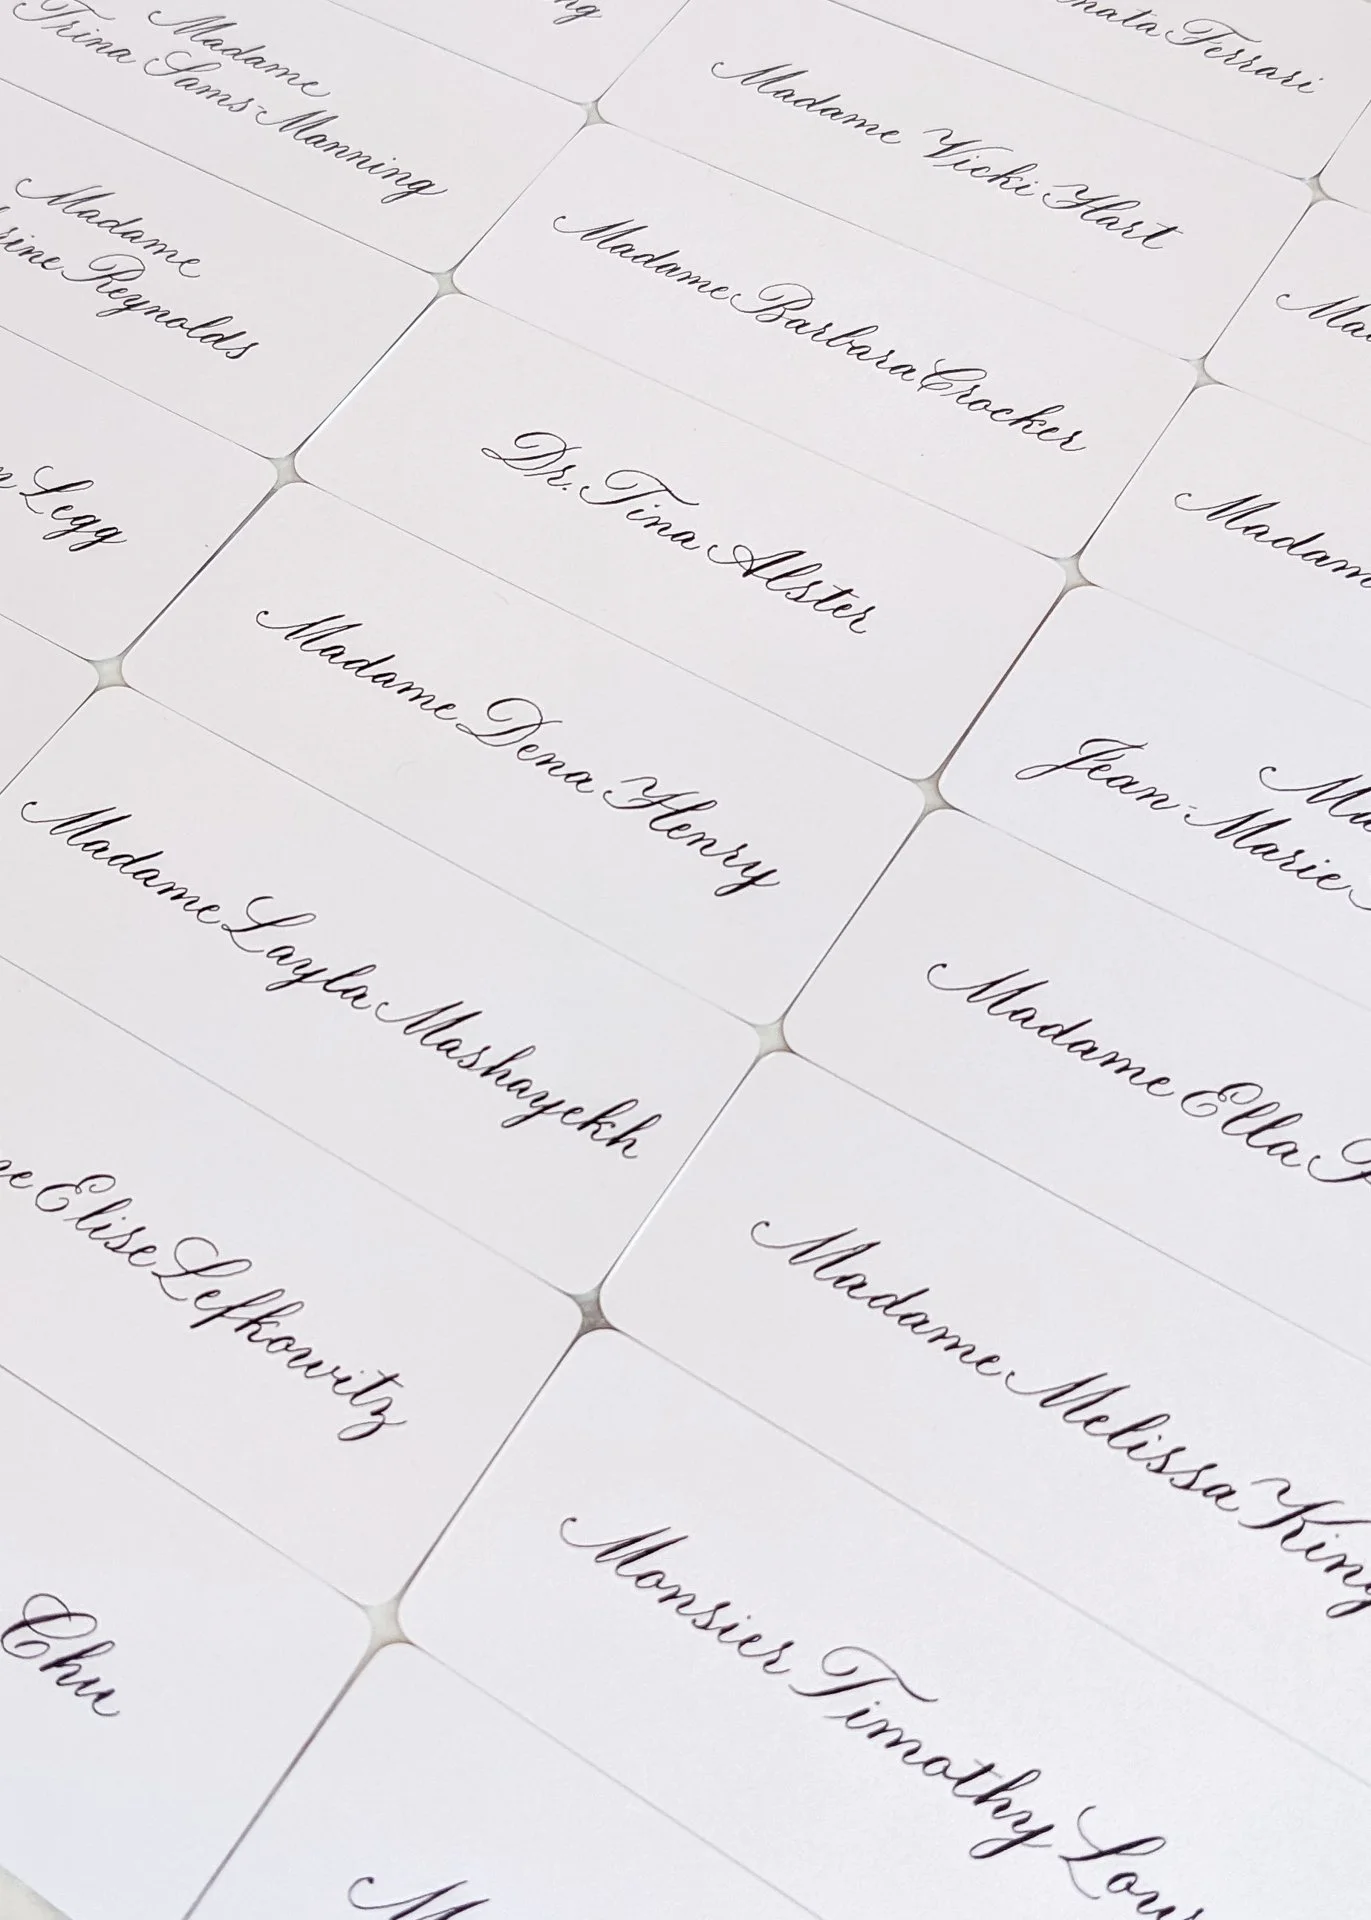 Madame
Trina Sams-Manning
Madame
Reynolds
Legg
Elise Lefkowitz
Chu
Ferrari
Madame Vicki Hart
Madame Barbara Crocker
Dr. Tina Alster
Madame Dena Henry
Madame Layla Mashayekh
Jean-Marie
Madame Ella
Madame Melissa King
Monsier Timothy